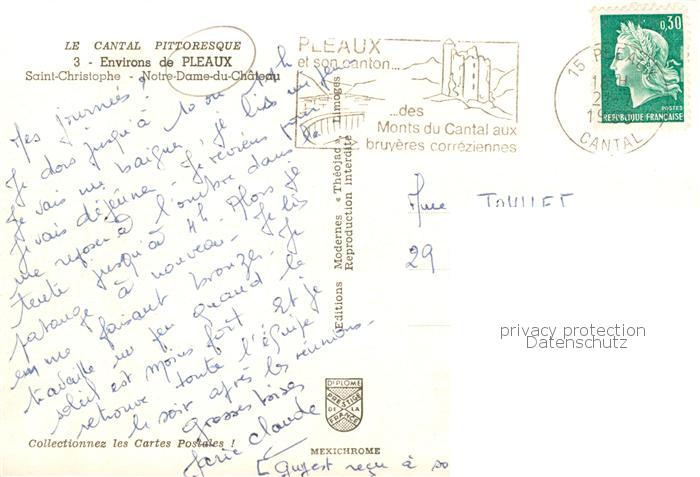 LE CANTAL PITTORESQUE
3 - Environs de PLEAUX
Saint-Christophe - Notre-Dame-du-Château
Mes journées ?
Je dors jusqu'à 10 ou 11h
Je vais me baigner, je lis un peu
Je vais déjeuner - Je reviens
me reposer à l'ombre dans la
tente jusqu'à 4h. Alors je
patauge à nouveau - Je lis
en me faisant bronzer. Je
travaille un peu quand le
soleil est moins fort et je
retrouve toute l'équipe
le soir après les réunions.
grosses bises
Marie Claude
Collectionnez les Cartes Postales !
Editions Modernes "Théojac", Limoges
Reproduction Interdite
DIPLOME
PRESTIGE
DE LA
FRANCE
MEXICHROME
PLEAUX
et son canton...
...des
Monts du Cantal aux
bruyères corréziennes
15 PLEAUX
CANTAL
0,30
POSTES
REPUBLIQUE FRANÇAISE
Mme
29
privacy protection
Datenschutz
reçu à